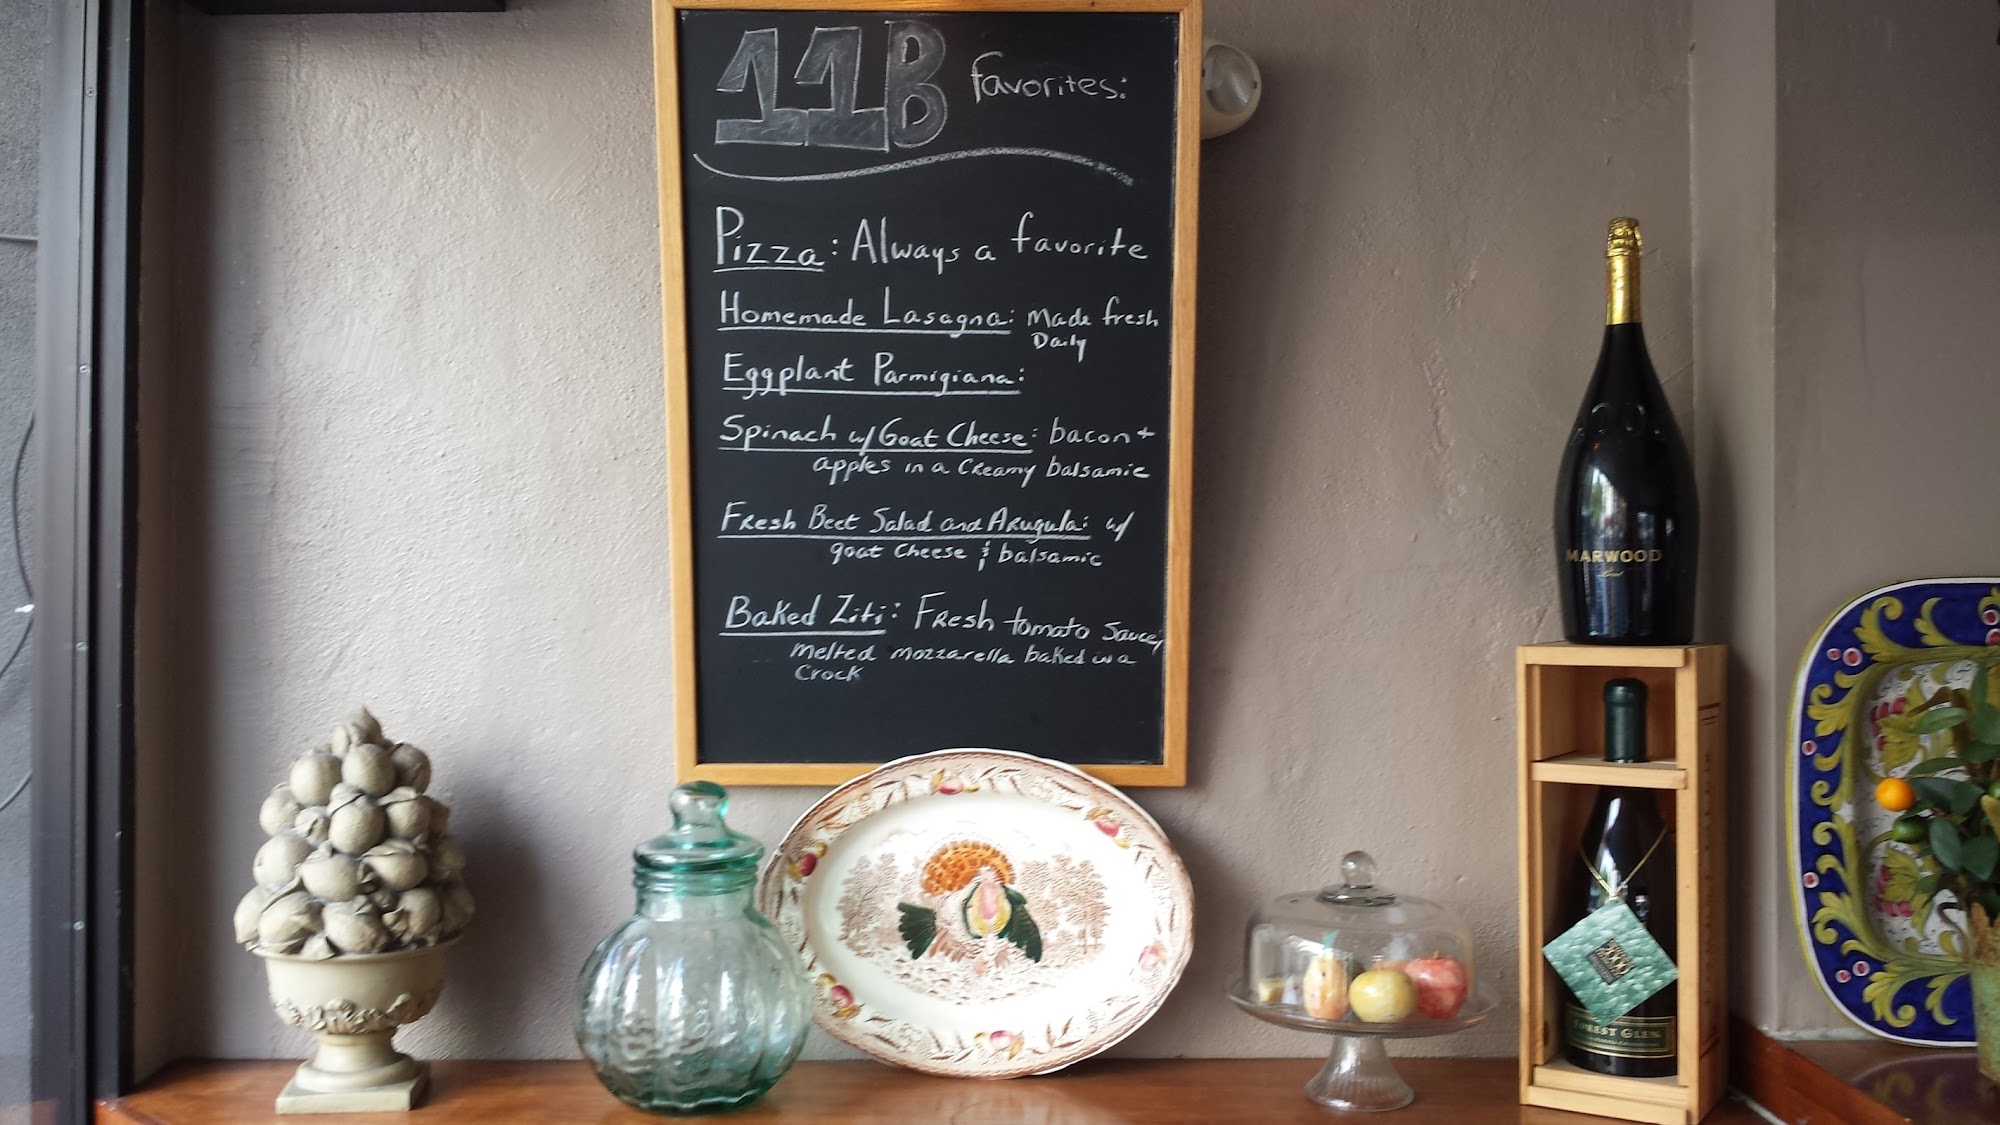 11B favorites:
Pizza: Always a favorite
Homemade Lasagna: Made fresh
Daily
Eggplant Parmigiana:
Spinach w/ Goat Cheese: bacon +
apples in a creamy balsamic
Fresh Beet Salad and Arugula: w/
goat cheese & balsamic
Baked Ziti: Fresh tomato sauce,
melted mozzarella baked in a
Crock
MARWOOD
Brut
2000
FOREST GLEN